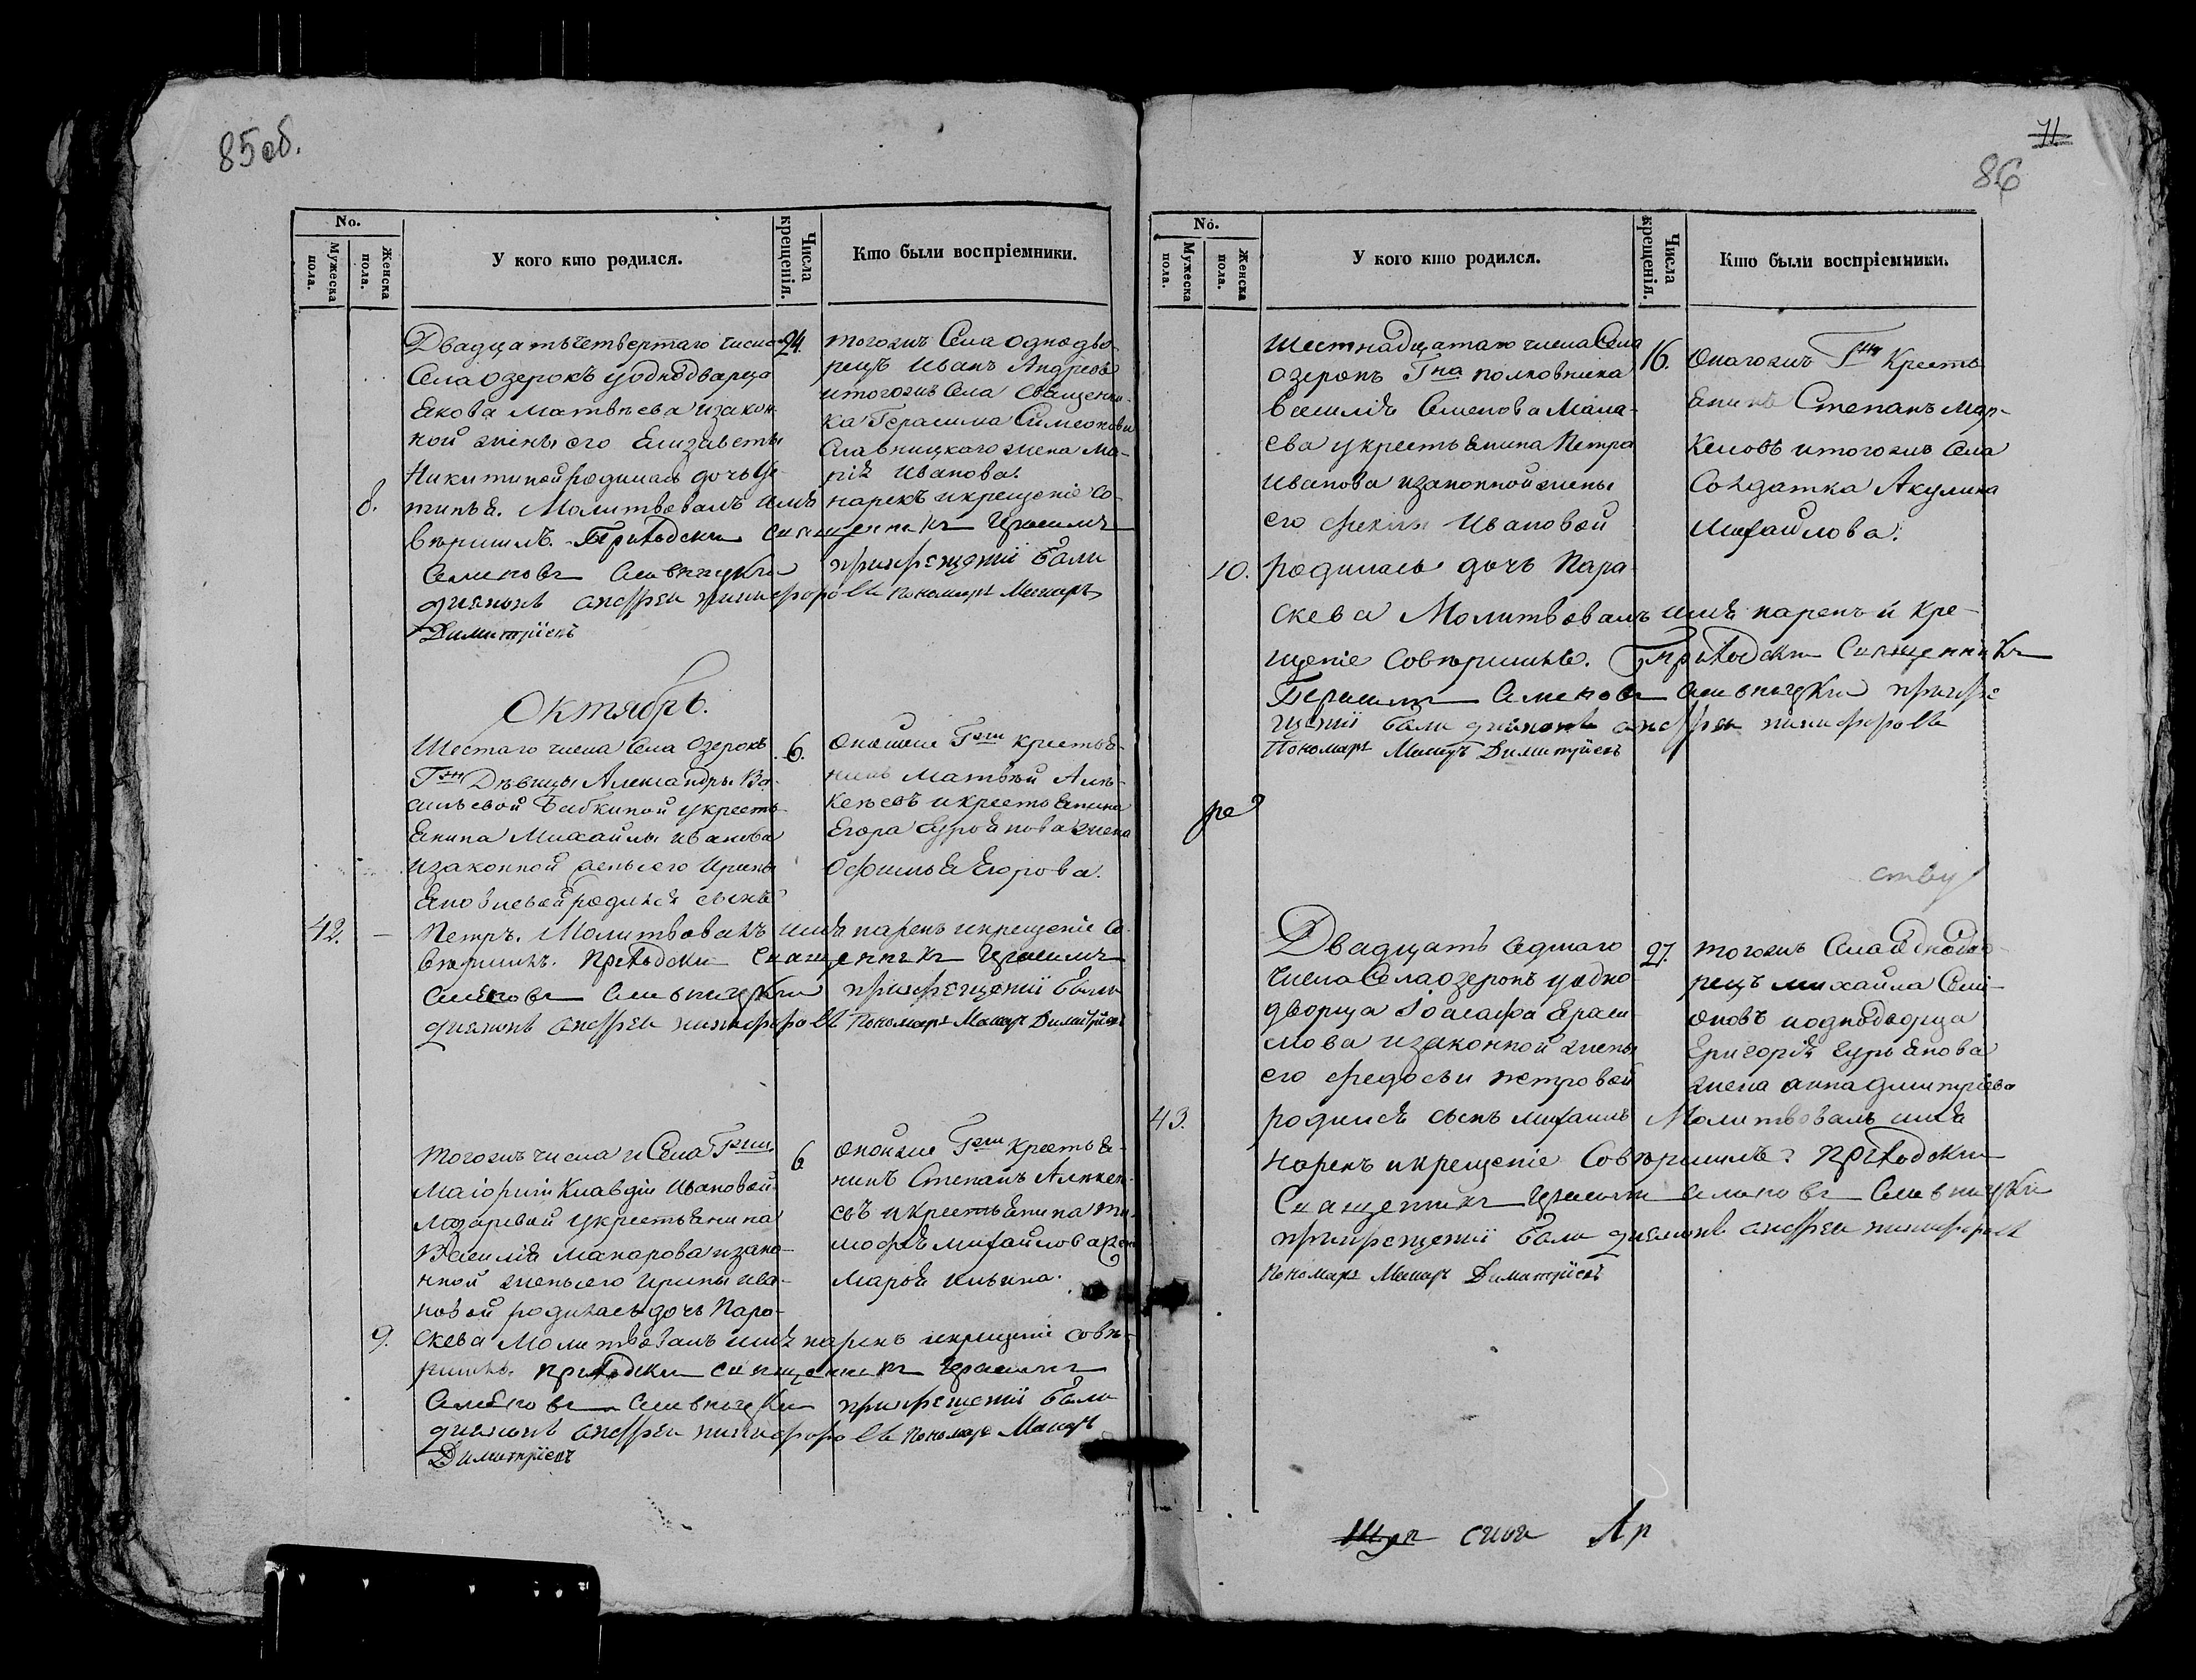 85об.
No.
Мужеска пола.
Женска пола.
У кого кто родился.
Числа крещенія.
Кто были воспріемники.
Двадцать четвертаго числа
Села озерокъ у однодварца
Якова Матвѣева и закон-
ной жены его Елизаветы
Никитиной родилась дочь
8.
Молитвовалъ имя нарекъ и крещеніе со-
вершилъ. Приходски священникъ Герасимъ
Семеновъ Славницки при крещеніи были
диаконъ Андреи никифоровъ пономарь Макаръ
Димитріевъ
24.
тогожъ Села однодво-
рецъ Иванъ Андреевъ
и тогожъ Села Священни-
ка Герасима Симеонова
Славницкаго жена Ма-
рія Иванова.
Октябрь.
Шестаго числа Села Озерокъ
Гжи Дѣвицы Александры Ва-
сильевой Бабкиной у кресть-
янина Михайлы иванова
и законной жены его Ирины
родился сынъ
42. –
Петръ. Молитвовалъ имя нарекъ и крещеніе со-
вершилъ. Приходски Священникъ Герасимъ
Семеновъ Славницки при крещеніи были
диаконъ Андреи никифоровъ Пономарь Макар Димитріевъ
6.
оной же Гжи крестья-
нинъ Матвѣй Алек-
сеевъ и крестьянина
Егора жена
Офимья Егорова.
тогожъ числа и Села Гжи
Маіорши Клавдіи Ивановой
Лазаревой у крестьянина
Василія макарова и зако-
нной жены его Ирины ива-
новой родилась дочь Пара-
9.
скева Молитвовалъ имя нарекъ и крещеніе сове-
ршилъ. Приходски священникъ Герасимъ
Семеновъ Славницки при крещеніи были
диаконъ Андреи никифоровъ пономарь Макаръ
Димитріевъ
6
оной же Гжи крестья-
нинъ Степанъ Алексе-
евъ и крестьянина ти-
мофѣя михайлова жена
Марѳа ильина.
71
86
No.
Мужеска пола.
Женска пола.
У кого кто родился.
Числа крещенія.
Кто были воспріемники.
Шестнадцатаго числа Села
озерокъ Гна полковника
Василія Семенова Мана-
ева у крестьянина Петра
Иванова и законной жены
его феклы Ивановой
10.
родилась дочь Пара-
скева Молитвовалъ имя нарекъ и кре-
щеніе совершилъ. Приходски Священникъ
Герасимъ Семеновъ Славницки при кре
щеніи были диаконъ андреи никифоровъ
Пономарь Макаръ Димитріевъ
16.
Онагожъ Гна Кресть
янинъ Степанъ Мар-
келовъ и тогожъ Села
Солдатка Акулина
Михайлова.
ре
ству
Двадцать седмаго
числа Села озерокъ у одно-
дворца Іоасафа Ераси-
мова и законной жены
его федосьи петровой
43.
родился сынъ михаилъ Молитвовалъ имя
нарекъ и крещеніе Совершилъ. Приходски
Священникъ Герасимъ Семеновъ Славницки
при крещеніи были диаконъ андреи никифоровъ
пономарь Макаръ Димитріевъ
27.
тогожъ Села Однодво-
рецъ михайла Сими-
оновъ и однодворца
Григорія Гурьянова
жена анна дмитріева